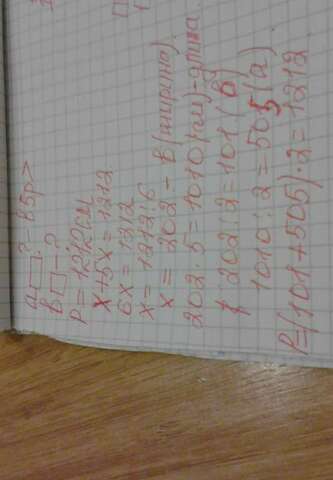 a □ ? - в 5р >
в □ - ?
P = 1212 см
x + 5x = 1212
6x = 1212
x = 1212 : 6
x = 202 - в (ширина)
202 · 5 = 1010 (см) - длина
202 : 2 = 101 (в)
1010 : 2 = 505 (а)
P = (101 + 505) · 2 = 1212